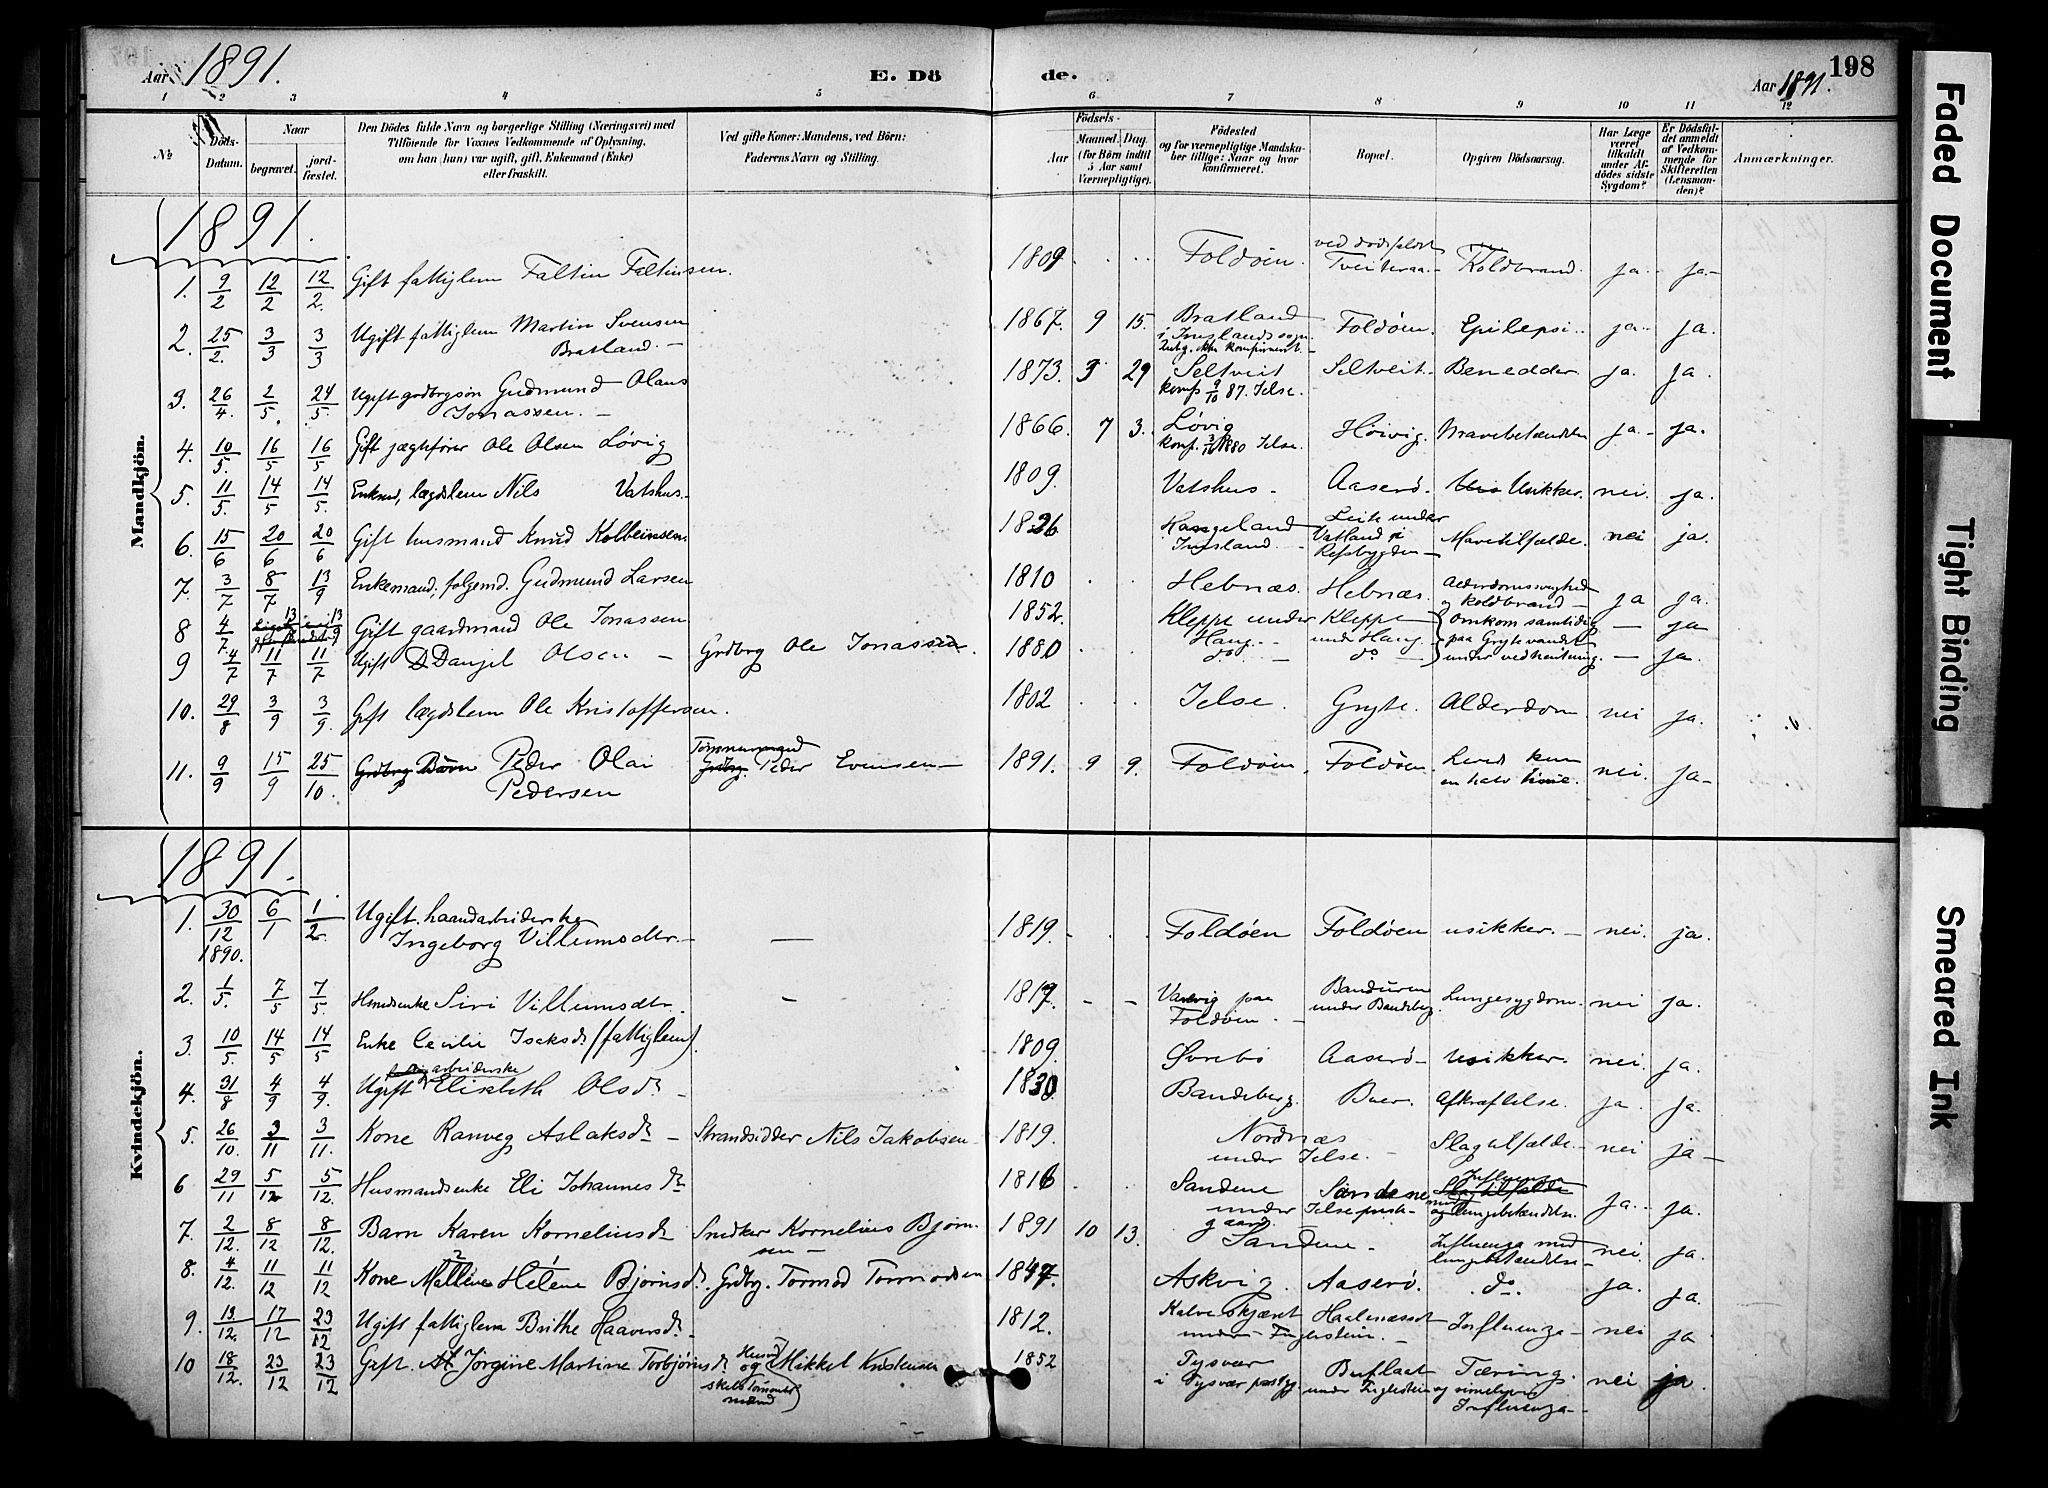 Aar 1891.
E. Dö
de.
Aar 1891.
198
1 2 3 4 5 6 7 8 9 10 11 12
№
Döds-Datum.
Naar
begravet.
jord-fæstet.
Den Dödes fulde Navn og borgerlige Stilling (Næringsvei) med
Tilföiende for Voxnes Vedkommende af Oplysning,
om han (hun) var ugift, gift, Enkemand (Enke)
eller fraskilt.
Ved gifte Koner: Mandens, ved Börn:
Faderens Navn og Stilling.
Födsels-
Aar
Maaned. Dag.
(for Börn indtil
5 Aar samt
Værnepligtige).
Födested
og for værnepligtige Mandska-
ber tillige: Naar og hvor
konfirmeret.
Bopæl.
Opgiven Dödsaarsag.
Har Læge
været
tilkaldt
under Af-
dödes sidste
Sygdom?
Er Dödsfal-
det anmeldt
af Vedkom-
mende for
Skifteretten
(Lensman-
den)?
Anmærkninger.
Mandkjön.
1891.
1. 9/2 12/2 12/2. Gift fattiglem Faltin Faltinsen. 1809 Foldøen. ved dødsfaldet Tveiteraa. Koldbrand. ja. ja
2. 25/2. 3/3 3/3 Ugift fattiglem Martin Svensen Bratland. 1867. 9 15. Bratland i Imslands sogn ikke konfirmeret. Foldøen. Epilepsi. ja. ja.
3. 26/4. 2/5. 24/5. Ugift gdbrgsøn Gudmund Olaus Jonassen. 1873. 3 29 Seltveit konf. 9/10 87. Jelse. Seltveit. Benedder ja. ja.
4. 10/5. 16/5 16/5 Gift jægtfører Ole Olsen Løvig 1866. 7 3. Løvig konf. 1880 Jelse. Høivig. Mavebetændelse ja. ja.
5. 11/5. 14/5 14/5. Enkmd, lægdslem Nils Vatshus. 1809. Vatshus. Aaserø. Usikker. nei. ja.
6. 15/6 20/6 20/6 Gift husmand Knud Kolbeinsen. 1826 Hangeland Imsland. Leite under Vatland i Refsbygden Mavetilfælde. nei ja.
7. 3/7 8/7 13/9 Enkemand, folgemd. Gudmund Larsen 1810 Hebnæs. Hebnæs. Alderdomssvaghed og koldbrand ja ja.
8 4/7. 13/9 Gift gaardmand Ole Jonassen 1852. Kleppe under Haug. Kleppe under Haug Omkom samtidig — ja
9 4/7 11/7 11/7 Ugift Danjel Olsen — Grdbrg Ole Jonassen. 1880 do do paa Grytevandet under vedhentning. — ja.
10. 29/8 3/9 3/9. Gift lægdslem Ole Kristoffersen. 1802 Jelse. Gryte. Alderdom nei ja.
11. 9/9 15/9 25/10. Grdbrg Børn Peder Olai Pedersen Tømmermand Grdbrg. Peder Evensen 1891. 9 9. Foldøen. Foldøen. Leved kun en halv time. nei. ja
Kvindekjön.
1891.
1. 30/12 1890. 6/1 1/2 Ugift haandarbeiderske Ingeborg Villumsdtr. — 1819. Foldøen Foldøen usikker. nei. ja.
2. 1/5. 7/5 7/5. Hmdsenke Siri Villumsdtr. — 1817. Varvig paa Foldøen. Banduren under Bandeberg Lungesygdom nei ja.
3. 10/5. 14/5 14/5 Enke Cecilie Isaksdr (fattiglem). 1809. Øvrebø Aaserø usikker. nei. ja.
4. 31/8 4/9 4/9. Ugift arbeiderske Elisebeth Olsdr. 1830. Bandeberg. Boer. Afkræftelse. ja. ja.
5. 26/10. 3/11 3/11. Kone Ranveg Aslaksdr — Strandsidder Nils Jakobsen. 1819. Nordnæs under Jelse. Slagtilfælde. nei ja
6 29/11 5/12 5/12. Husmandsenke Eli Johannesdr 1816 Sandene under gaard Sandene Jelse præste- Influenza Slagtilfælde med og lungebetændelse. ja. ja.
7. 2/12. 8/12 8/12. Barn Karen Kornelinsdr Snedker Kornelius Bjørnsen 1891 10 13. Sandene. Influenza med lungebetændelse nei. ja.
8. 4/12. 11/12 11/12 Kone Mallene Helene Bjørnsdr. Grdbrg. Tormod Tormodsen 1847. Askvig. Aaserø. do. ja. ja.
9. 13/12. 17/12 23/12 Ugift fattiglem Brithe Haaversdr 1812. Kalveskjæret under Fuglestein. Haalenæsset Influenza nei ja
10 18/12. 23/12 23/12 Gift. Jørgine Martine Torbjørnsdr Husmd og skibstømmermand Mikkel Kristensen 1852 Tysvær i Tysvær prstgj. Buflaat under Fuglestein Tæring. og simelrei Influenza nei ja.
Faded Document
Tight Binding
Smeared Ink